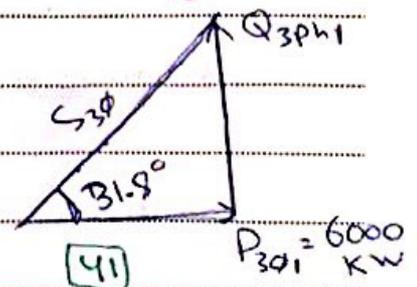 Q3ph1
S3ϕ
31.8°
P3ϕ1 = 6000
KW
41